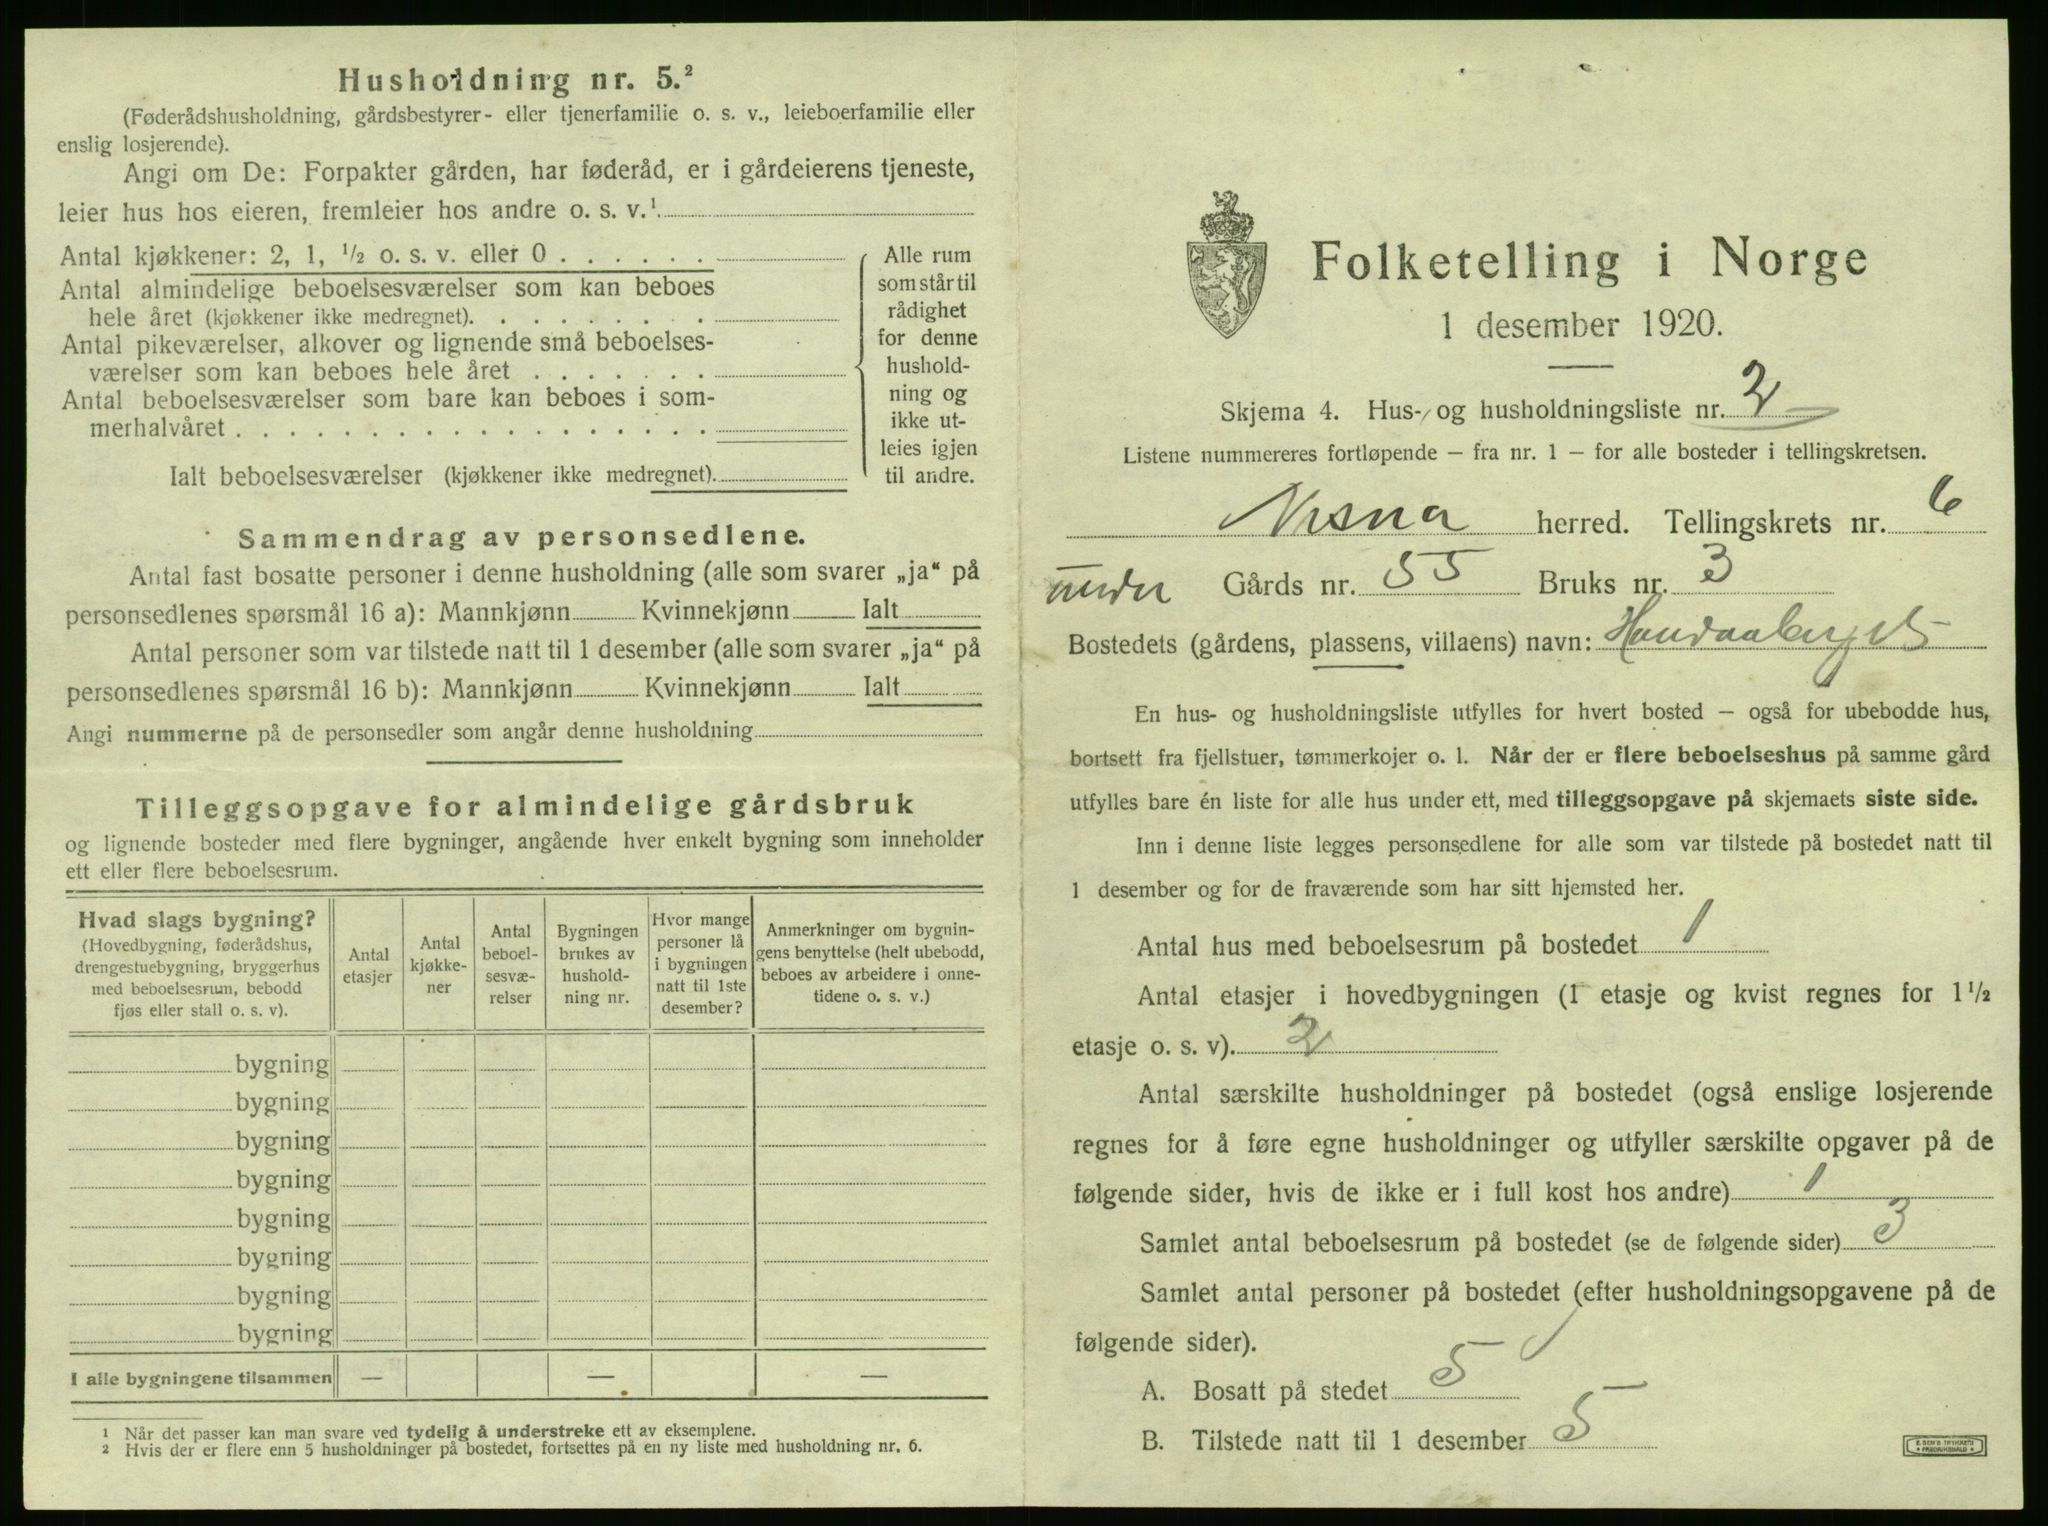 Husholdning nr. 5.²
(Føderådshusholdning, gårdsbestyrer- eller tjenerfamilie o. s. v., leieboerfamilie eller
enslig losjerende).
Angi om De: Forpakter gården, har føderåd, er i gårdeierens tjeneste,
leier hus hos eieren, fremleier hos andre o. s. v.¹
Antal kjøkkener: 2, 1, ½ o. s. v. eller 0 . . . . . .
Antal almindelige beboelsesværelser som kan beboes
hele året (kjøkkener ikke medregnet). . . . . . . . .
Antal pikeværelser, alkover og lignende små beboelses-
værelser som kan beboes hele året . . . . . . .
Antal beboelsesværelser som bare kan beboes i som-
merhalvåret . . . . . . . . . . . . . . . . . .
Ialt beboelsesværelser (kjøkkener ikke medregnet).
Alle rum
som står til
rådighet
for denne
hushold-
ning og
ikke ut-
leies igjen
til andre.
Sammendrag av personsedlene.
Antal fast bosatte personer i denne husholdning (alle som svarer „ja“ på
personsedlenes spørsmål 16 a): Mannkjønn Kvinnekjønn Ialt
Antal personer som var tilstede natt til 1 desember (alle som svarer „ja“ på
personsedlenes spørsmål 16 b): Mannkjønn Kvinnekjønn Ialt
Angi nummerne på de personsedler som angår denne husholdning
Tilleggsopgave for almindelige gårdsbruk
og lignende bosteder med flere bygninger, angående hver enkelt bygning som inneholder
ett eller flere beboelsesrum.
Hvad slags bygning?
(Hovedbygning, føderådshus,
drengestuebygning, bryggerhus
med beboelsesrum, bebodd
fjøs eller stall o. s. v).
Antal
etasjer
Antal
kjøkke-
ner
Antal
beboel-
sesvæ-
relser
Bygningen
brukes av
hushold-
ning nr.
Hvor mange
personer lå
i bygningen
natt til 1ste
desember?
Anmerkninger om bygnin-
gens benyttelse (helt ubebodd,
beboes av arbeidere i onne-
tidene o. s. v.)
bygning
bygning
bygning
bygning
bygning
bygning
bygning
bygning
I alle bygningene tilsammen — — —
¹ Når det passer kan man svare ved tydelig å understreke ett av eksemplene.
² Hvis der er flere enn 5 husholdninger på bostedet, fortsettes på en ny liste med husholdning nr. 6.
Folketelling i Norge
1 desember 1920.
Skjema 4. Hus- og husholdningsliste nr. 2
Listene nummereres fortløpende — fra nr. 1 — for alle bosteder i tellingskretsen.
Nesna herred. Tellingskrets nr. 6
under Gårds nr. 55 Bruks nr. 3
Bostedets (gårdens, plassens, villaens) navn:
En hus- og husholdningsliste utfylles for hvert bosted — også for ubebodde hus,
bortsett fra fjellstuer, tømmerkojer o. l. Når der er flere beboelseshus på samme gård
utfylles bare én liste for alle hus under ett, med tilleggsopgave på skjemaets siste side.
Inn i denne liste legges personsedlene for alle som var tilstede på bostedet natt til
1 desember og for de fraværende som har sitt hjemsted her.
Antal hus med beboelsesrum på bostedet 1
Antal etasjer i hovedbygningen (1 etasje og kvist regnes for 1½
etasje o. s. v). 2
Antal særskilte husholdninger på bostedet (også enslige losjerende
regnes for å føre egne husholdninger og utfyller særskilte opgaver på de
følgende sider, hvis de ikke er i full kost hos andre) 1
Samlet antal beboelsesrum på bostedet (se de følgende sider) 3
Samlet antal personer på bostedet (efter husholdningsopgavene på de
følgende sider).
A. Bosatt på stedet 5
B. Tilstede natt til 1 desember 5